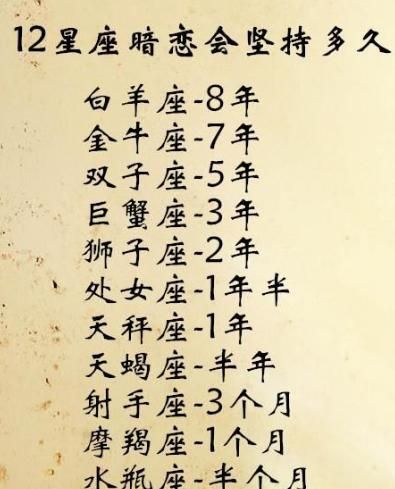 12星座暗恋会坚持多久
白羊座-8年
金牛座-7年
双子座-5年
巨蟹座-3年
狮子座-2年
处女座-1年半
天秤座-1年
天蝎座-半年
射手座-3个月
摩羯座-1个月
水瓶座-半个月